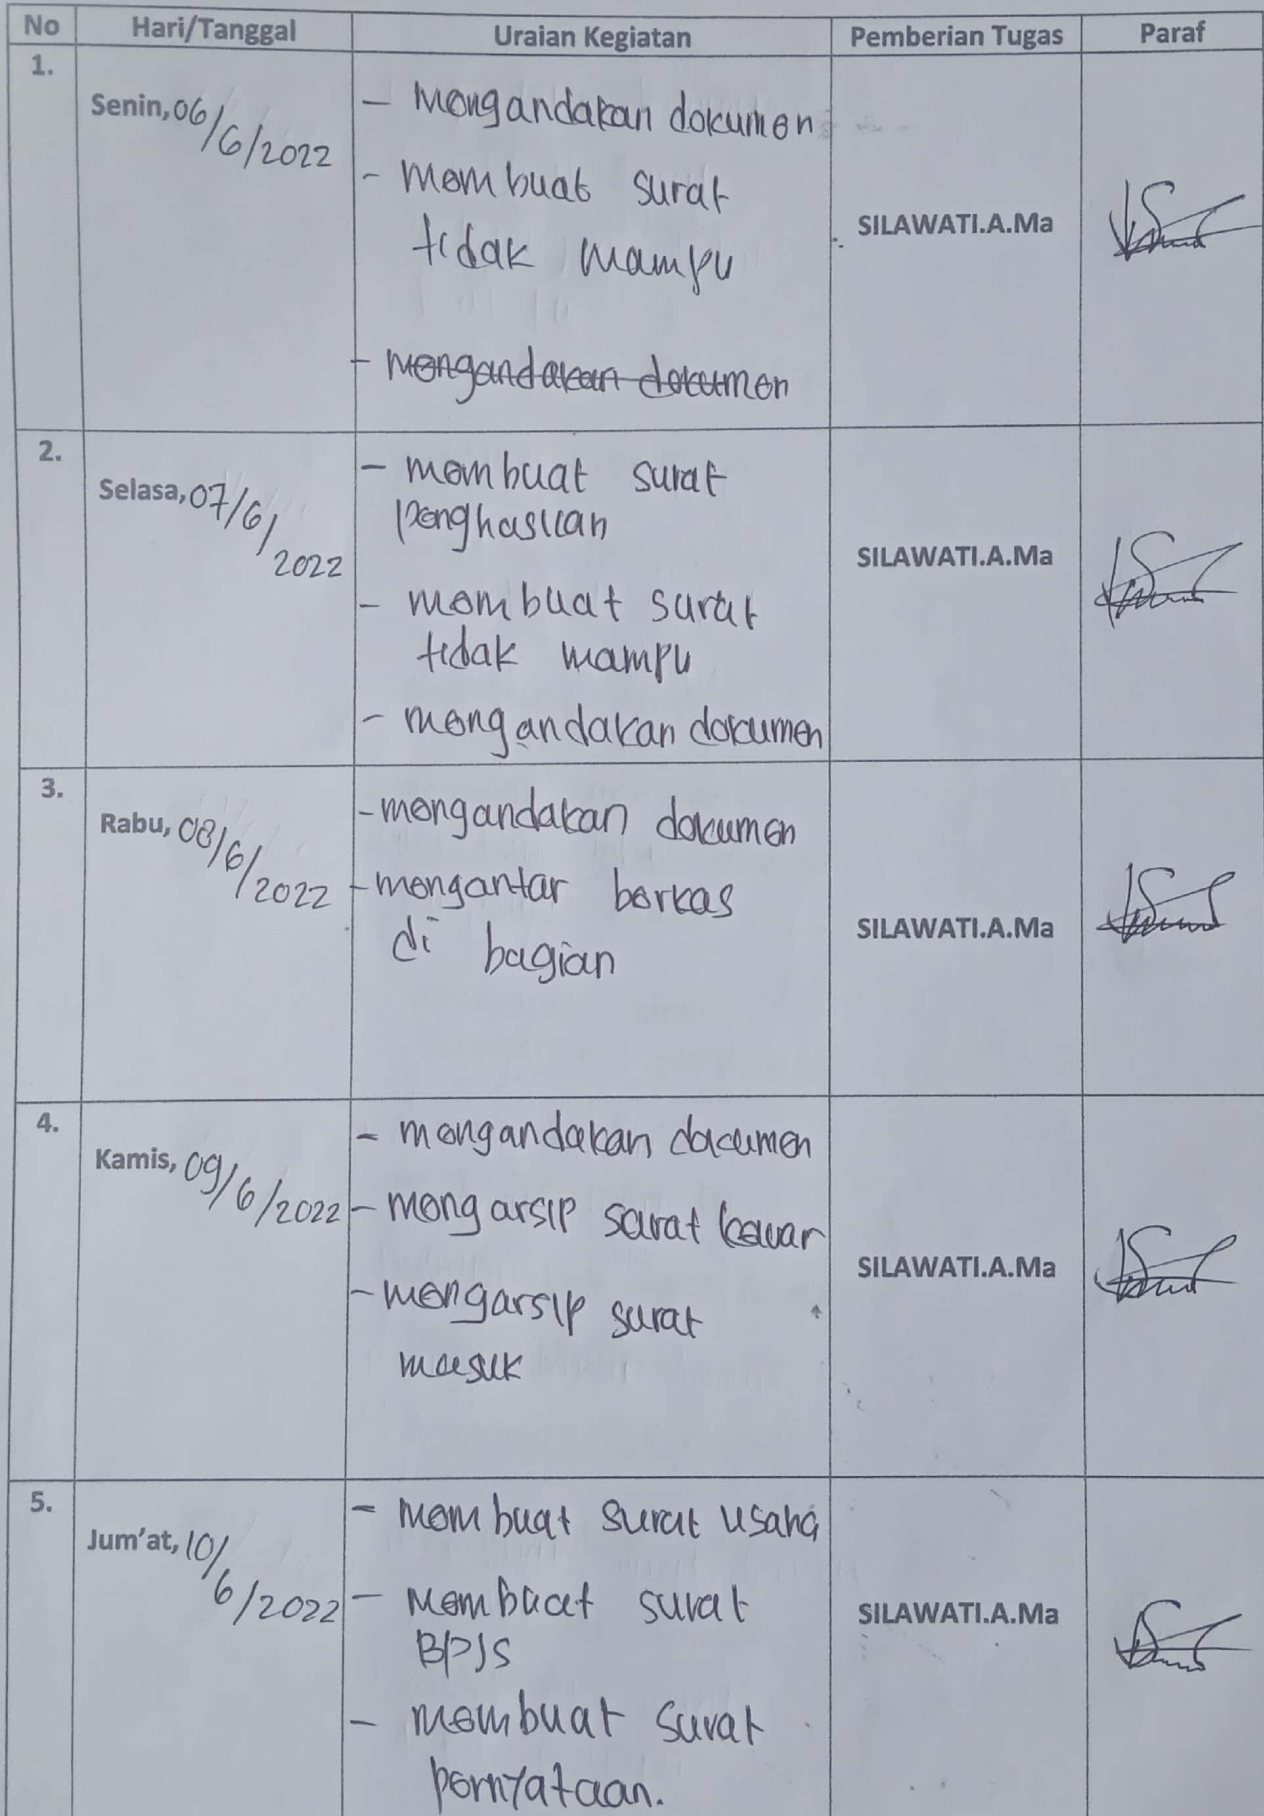 No Hari/Tanggal Uraian Kegiatan Pemberian Tugas Paraf
1.
Senin, 06/6/2022
- Mengandakan dokumen
- membuat surat
tidak mampu
- mengandakan dokumen
SILAWATI.A.Ma
2.
Selasa, 07/6/
2022
- membuat surat
penghasilan
- membuat surat
tidak mampu
- mengandakan dokumen
SILAWATI.A.Ma
3.
Rabu, 08/6/2022
- mengandakan dokumen
- mengantar berkas
di bagian
SILAWATI.A.Ma
4.
Kamis, 09/6/2022
- mengandakan documen
- mengarsip surat keluar
- mengarsip surat
masuk
SILAWATI.A.Ma
5.
Jum'at, 10/
6/2022
- membuat surat usaha
- Membuat surat
BPJS
- membuat surat
pernyataan.
SILAWATI.A.Ma